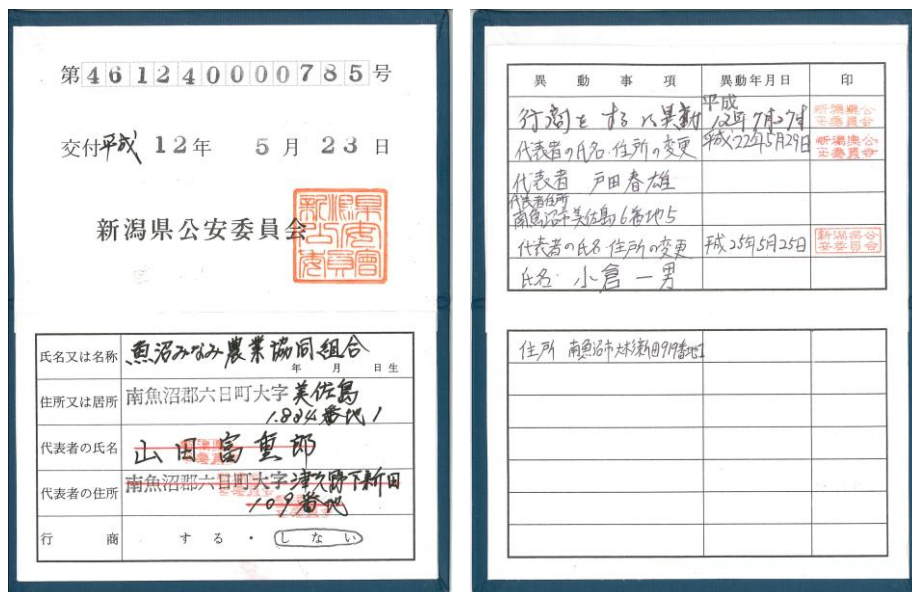 第461240000785号
交付平成12年 5月23日
新潟県公安委員会
新潟県公安委員會
氏名又は名称 魚沼みなみ農業協同組合
年 月 日生
住所又は居所 南魚沼郡六日町大字美佐島
1.884番地1
代表者の氏名 山田富重郎
代表者の住所 南魚沼郡六日町大字津久野下新田
109番地
行 商 する・しない
異動事項 異動年月日 印
行商をするに異動 平成
12年7月27日 新潟県公
安委員会
代表者の氏名・住所の変更 平成22年5月29日 新潟県公
安委員会
代表者 戸田春雄
代表者住所
南魚沼市美佐島6番地5
代表者の氏名・住所の変更 平成25年5月25日 新潟県公
安委員会
氏名 小倉一男
住所 南魚沼市新田919番地1